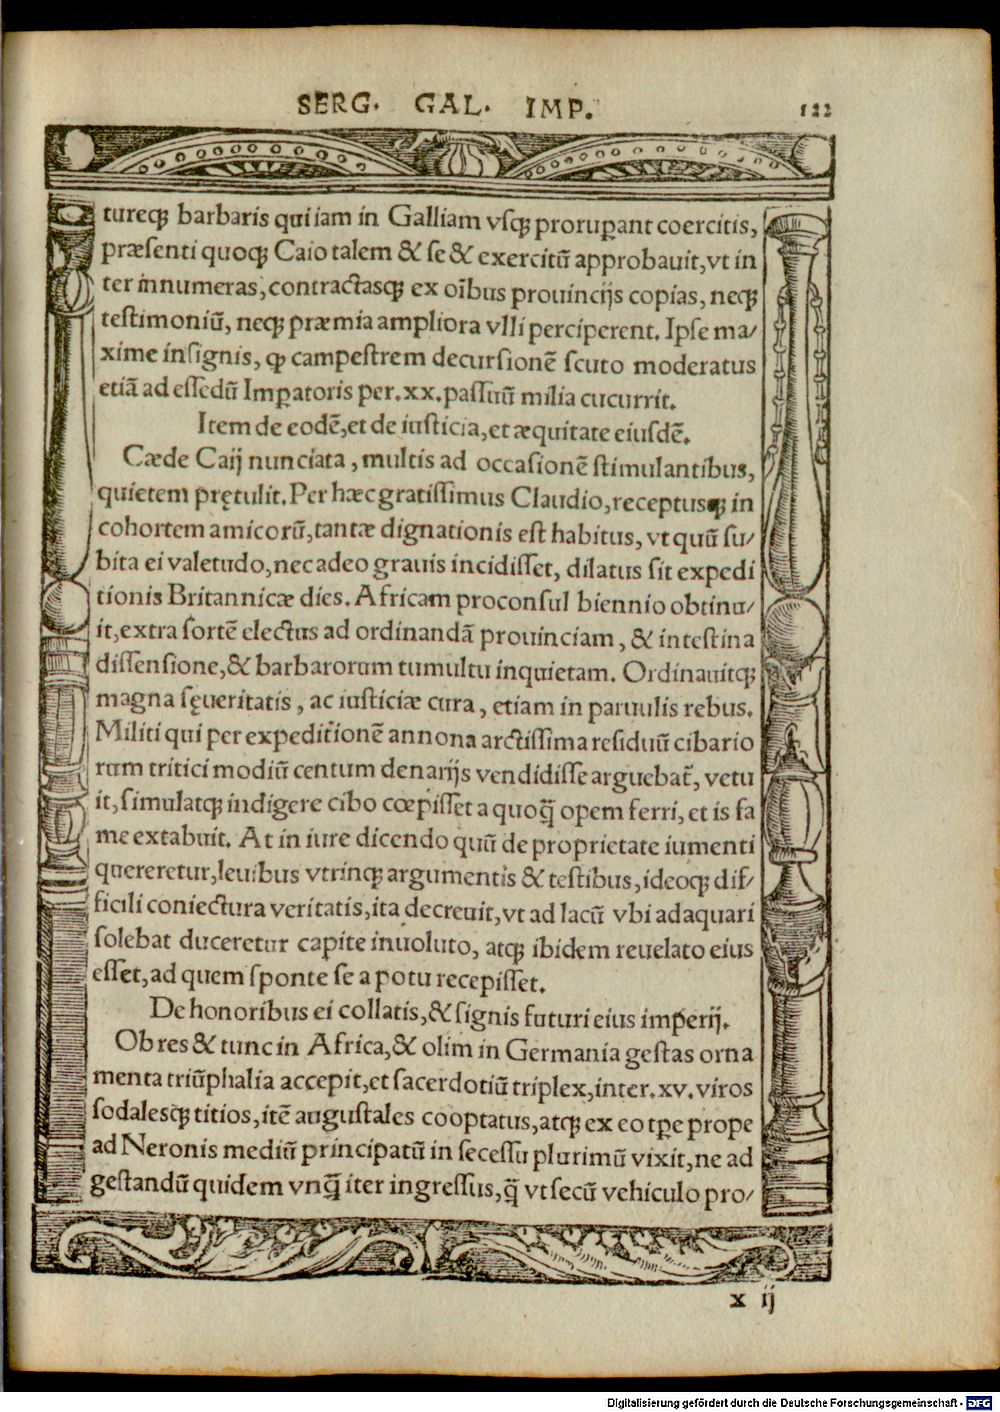 SERG. GAL. IMP. 122
tureqꝫ barbaris qui iam in Galliam vſqꝫ proruꝑant coercitis,
præſenti quoqꝫ Caio talem & ſe & exercitū approbauit, vt in
ter innumeras, contractasqꝫ ex oı̄bus prouincijs copias, neqꝫ
teſtimoniū, neqꝫ præmia ampliora vlli perciperent. Ipſe ma/
xime inſignis, ꝙ campeſtrem decurſionē ſcuto moderatus
etiā ad eſſedū Imꝑatoris per .xx. paſſuū milia cucurrit.
Item de eodē, et de iuſticia, et æquitate eiuſdē.
Cæde Caij nunciata, multis ad occaſionē ſtimulantibus,
quietem prętulit. Per hæc gratiſſimus Claudio, receptusqꝫ in
cohortem amicorū, tantæ dignationis eſt habitus, vt quū ſu/
bita ei valetudo, nec adeo grauis incidiſſet, dilatus ſit expedi
tionis Britannicæ dies. Africam proconſul biennio obtinu/
it, extra ſortē electus ad ordinandā prouinciam, & inteſtina
diſſenſione, & barbarorum tumultu inquietam. Ordinauitqꝫ
magna ſęueritatis, ac iuſticiæ cura, etiam in paruulis rebus.
Militi qui per expeditionē annona arctiſſima reſiduū cibario
rum tritici modiū centum denarijs vendidiſſe arguebat᷑, vetu
it, ſimulatqꝫ indigere cibo cœpiſſet a quoq̄ opem ferri, et is fa
me extabuit. At in iure dicendo quū de proprietate iumenti
quereretur, leuibus vtrinqꝫ argumentis & teſtibus, ideoqꝫ dif/
ficili coniectura veritatis, ita decreuit, vt ad lacū vbi adaquari
ſolebat duceretur capite inuoluto, atqꝫ ibidem reuelato eius
eſſet, ad quem ſponte ſe a potu recepiſſet.
De honoribus ei collatis, & ſignis futuri eius imperij.
Ob res & tunc in Africa, & olim in Germania geſtas orna
menta triūphalia accepit, et ſacerdotiū triplex, inter .xv. viros
ſodalesqꝫ titios, itē auguſtales cooptatus, atqꝫ ex eo tꝑe prope
ad Neronis mediū principatū in ſeceſſu plurimū vixit, ne ad
geſtandū quidem vnq̄ iter ingreſſus, q̄ vt ſecū vehiculo pro/
x ij
Digitalisierung gefördert durch die Deutsche Forschungsgemeinschaft - DFG